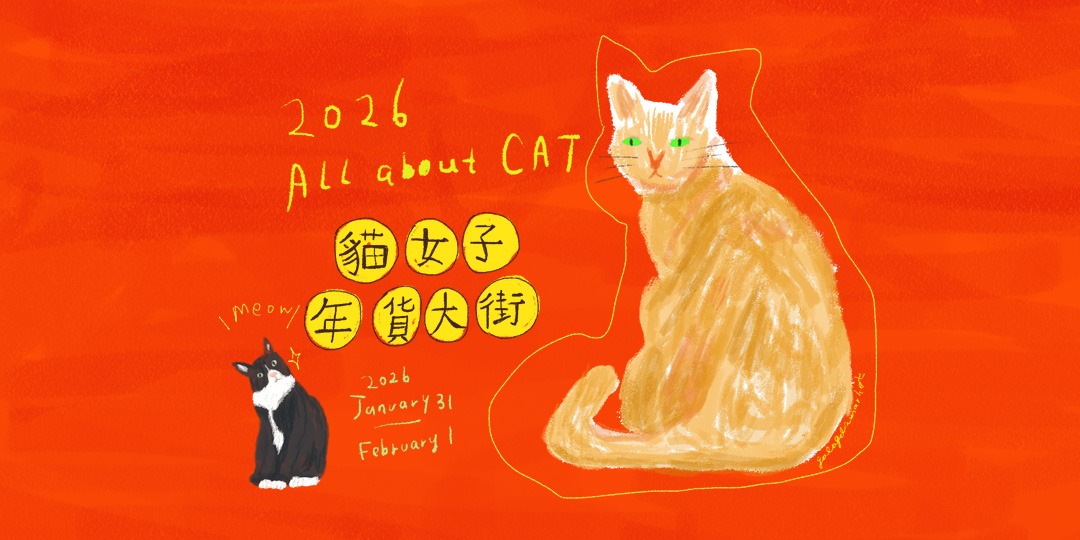 2026
All about CAT
貓女子
年貨大街
\meow/
2026
January 31
February 1